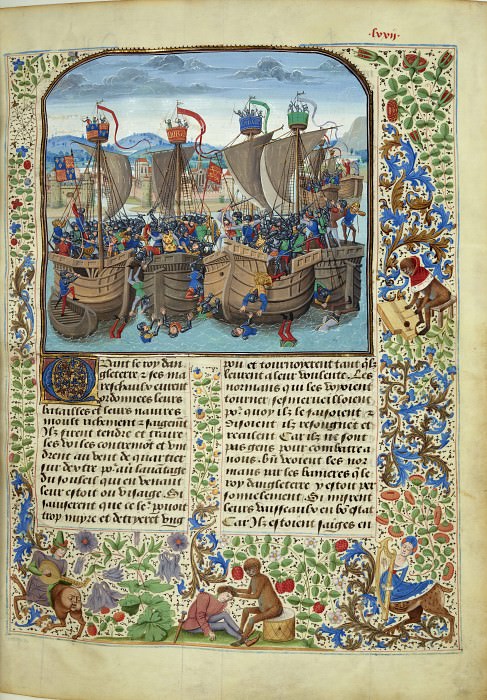 .lvvij.
Quant le roy dan
gleterre & ses ma
reschaulx eurent
ordonnees leurs
batailles et leurs nauires
moult richement & sagemt
Ilz firent tendre et traire
les voilles contremont et vin
drent au vent de quartier
sur dextre por auoir lauantage
du souleil qui en venant
leur estoit ou visaige. Si
sauiserent que ce les pouoit
trop nuyre et detryerent vng
pou et tournoyerent tant qlz
leurent a leur voulente. Les
normans qui les voyoient
tourner sesmerueilloient
por quoy ilz le faisoient &
disoient ilz resongnent et
reculent Car ilz ne sont
pas gens pour combatre a
nous. bien veoient les nor
mans par les banieres que
roy dangleterre y estoit per
sonnelement. Si mirent
leurs vaisseaulx en bon estat
Car ilz estoient saiges en